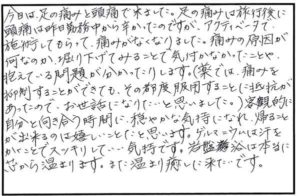 今日は、足の痛みと頭痛で来ました。足の痛みは旅行後に
頭痛は昨日勤務中から辛かったのですが、アクティベータで
施術してもらって、痛みがなくなりました。痛みの原因が
何なのか、掘り下げてみることで気付かなかったことや、
抱えている問題が分かったりします。(薬では、痛みを
抑制することができても、その都度服用することに抵抗が
あったので、お世話になりたいと思いました。) 客観的に
自分と向き合う時間に、穏やかな気持になれ、帰ること
が出来るのは嬉しいことだと思います。ゲルマニウムは汗を
かくことでスッキリして…気持です。岩盤浴は本当に
芯から温まります。また温まり癒しに来たいです。